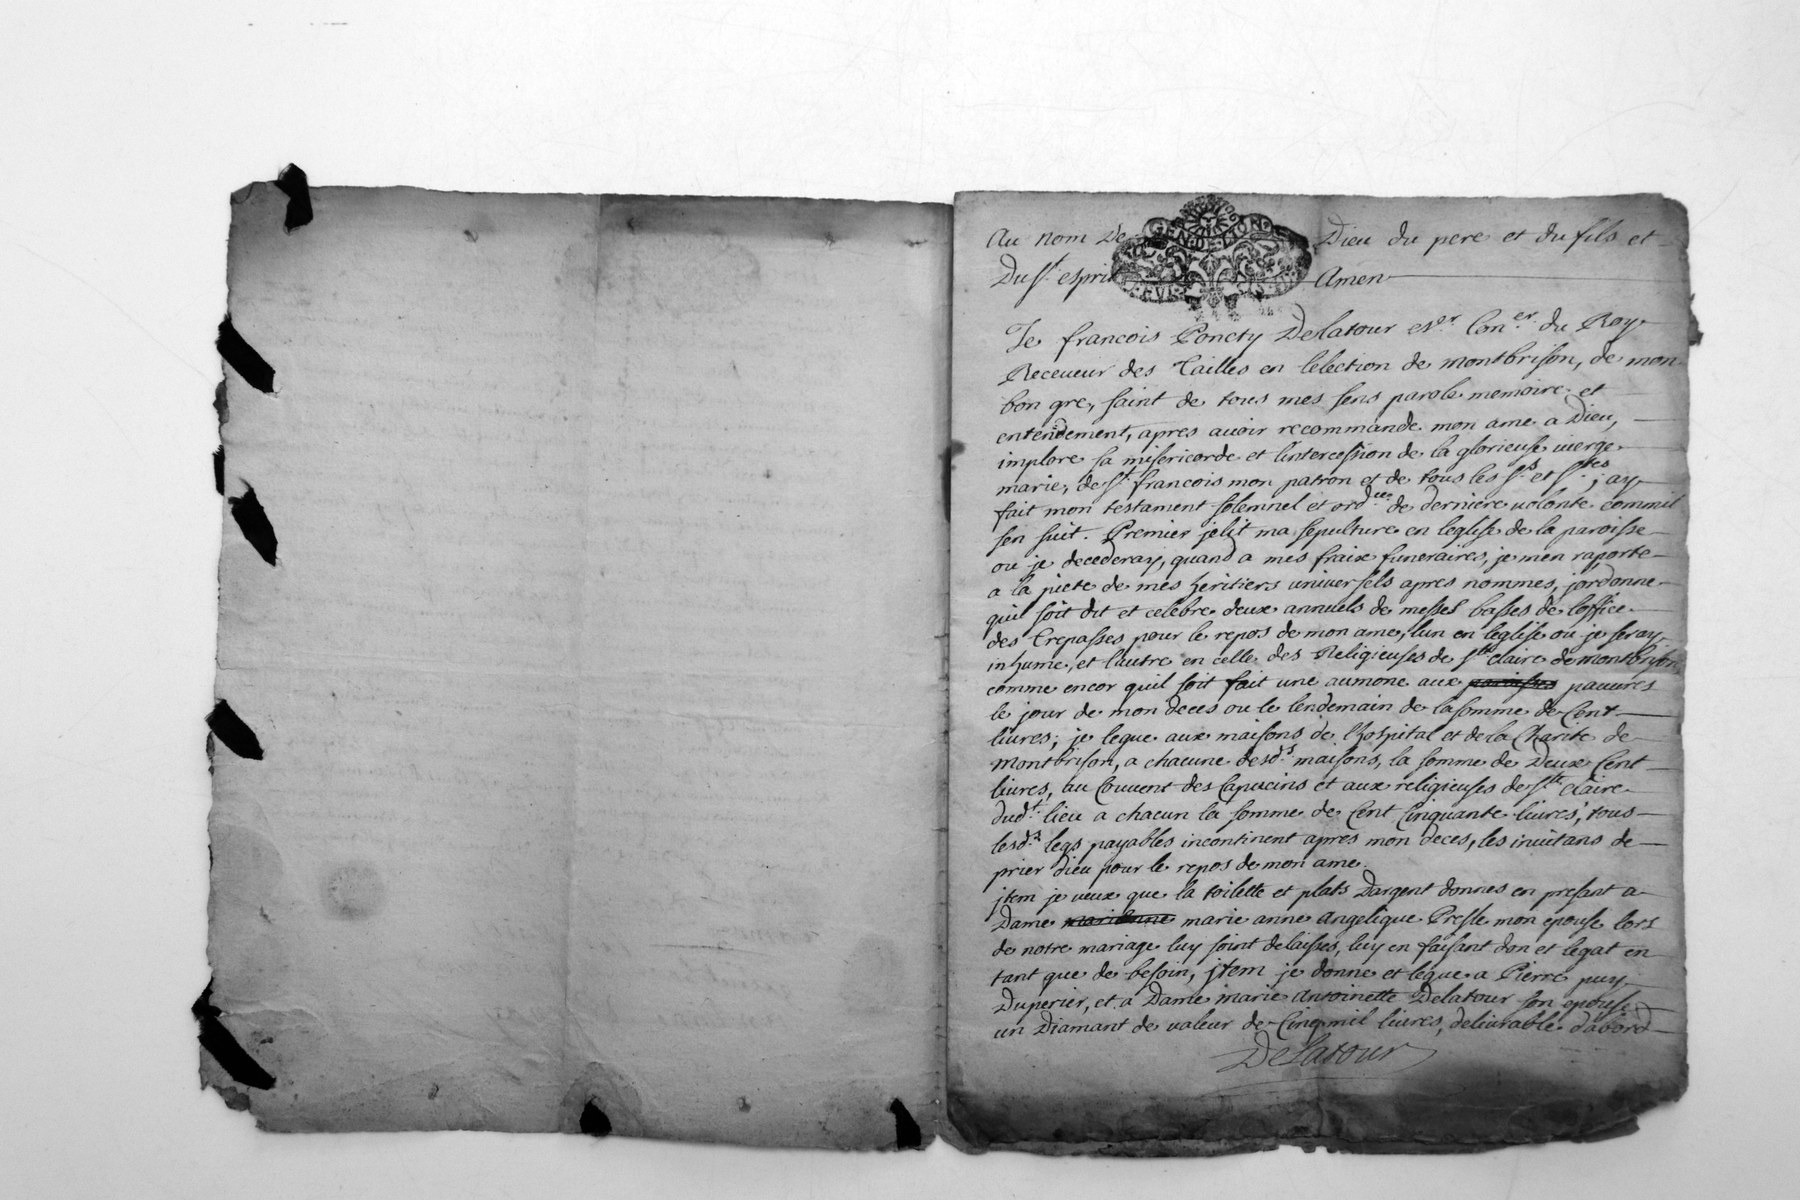 Au nom De Dieu du pere et du fils et
Du st. esprit Amen
GEN·DE·LION
Je francois Poncty Delatour eser Coner. du Roy
Receueur des Tailles en lelection de montbrison, de mon
bon gre, saint de tous mes sens parole memoire et
entendement, apres auoir recommande mon ame a Dieu,
implore sa misericorde et lintercession de la glorieuse uierge
marie, de st. francois mon patron et de tous les sts. et stes.; ay
fait mon testament solemnel et ordce. de derniere uolonte comme il
sen suit. Premier jelit ma sepulture en leglise de la paroisse
ou je decederay, quand a mes fraix funeraires, je men raporte
a la piete de mes heritiers uniuersels apres nommes, jordonne
quil soit dit et celebre deux annuels de messes basses de loffice
des Trepasses pour le repos de mon ame, lun en leglise ou je seray
inhume, et lautre en celle des Religieuses de ste claire de montbrison
comme encor quil soit fait une aumone aux pauures
le jour de mon deces ou le lendemain de la somme de Cent
liures; je legue aux maisons de lhospital et de la Charite de
montbrison, a chacune desds. maisons, la somme de Deux Cent
liures, au Couuent des Capucins et aux religieuses de ste. claire
dudt. lieu a chacun la somme de Cent Cinquante liures; tous
lesds. legs payables incontinent apres mon deces, les inuitans de
prier dieu pour le repos de mon ame.
jtem je ueux que la toilette et plats Dargent donnes en present a
Dame marie anne angelique Presle mon epouse lors
de notre mariage luy soint delaisses, luy en faisant don et legat en
tant que de besoin, jtem je donne et legue a Pierre puy
Duperier, et a Dame marie antoinette Delatour son epouse
un Diamant de ualeur de Cinq mil liures, deliurable dabord
Delatour